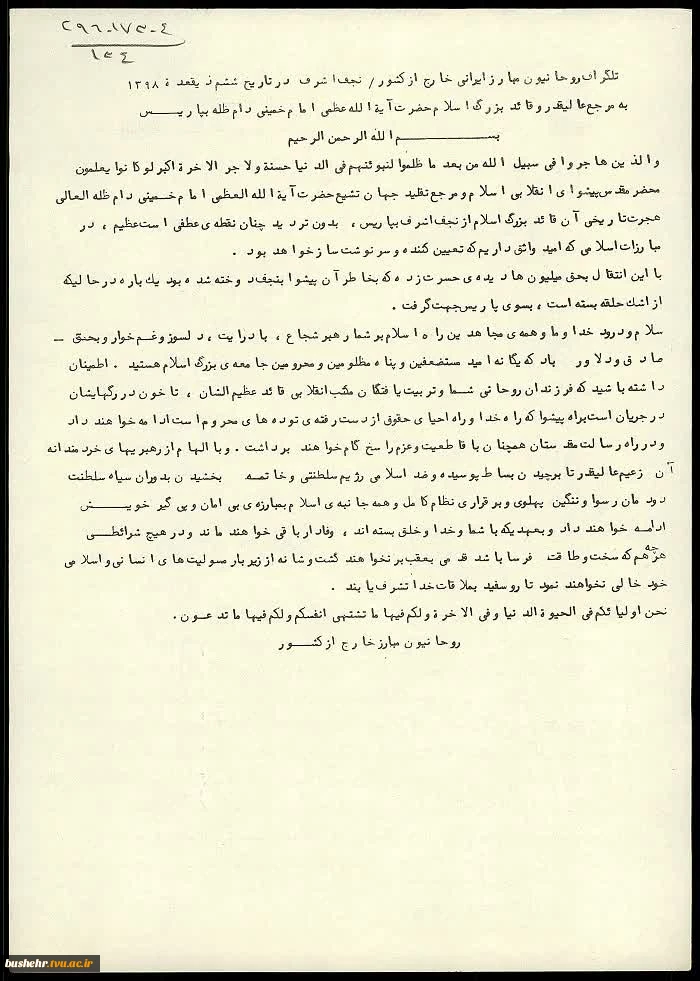 ۲۹۶-۱۷۳-۴
۱۳۴
تلگراف روحانیون مبارز ایرانی خارج از کشور / نجف اشرف در تاریخ ششم ذیقعدة ۱۳۹۸
به مرجع عالیقدر و قائد بزرگ اسلام حضرت آیة الله عظمی امام خمینی دام ظله بپاریس
بسم الله الرحمن الرحیم
والذین هاجروا فی سبیل الله من بعد ما ظلموا لنبوئنهم فی الدنیا حسنة ولاجر الاخرة اکبر لو کانوا یعلمون
محضر مقدس پیشوای انقلابی اسلام و مرجع تقلید جهان تشیع حضرت آیة الله العظمی امام خمینی دام ظله العالی
هجرت تاریخی آن قائد بزرگ اسلام از نجف اشرف بپاریس ، بدون تردید چنان نقطه ی عطفی است عظیم ، در
مبارزات اسلامی که امید واثق داریم که تعیین کننده و سرنوشت ساز خواهد بود .
با این انتقال بحق میلیون ها دیده ی حسرت زده که بخاطر آن پیشوا بنجف دوخته شده بود یك باره در حالیکه
از اشك حلقه بسته است ، بسوی پاریس جهت گرفت .
سلام و درود خدا و ما و همه ی مجاهدین راه اسلام بر شما رهبر شجاع ، با درایت ، دلسوز و غمخوار و بحق ـ
صادق و دلاور باد که یگانه امید مستضعفین و پناه مظلومین و محرومین جامعه ی بزرگ اسلام هستید . اطمینان
داشته باشید که فرزندان روحانی شما و تربیت یافتگان مکتب انقلابی قائد عظیم الشان ، تا خون در رگهایشان
در جریان است براه پیشوا که راه خدا و راه احیای حقوق از دست رفته ی توده های محروم است ادامه خواهند داد
و در راه رسالت مقدستان همچنان با قاطعیت و عزم راسخ گام خواهند برداشت . و با الهام از رهبریهای خردمندانه
آن زعیم عالیقدر تا برچیدن بساط پوسیده و ضد اسلامی رژیم سلطنتی و خاتمه بخشیدن بدوران سیاه سلطنت
دودمان رسوا و ننگین پهلوی و برقراری نظام کامل و همه جانبه ی اسلام بمبارزه ی بی امان و پی گیر خویش
ادامه خواهند داد و بعهدیکه با شما و خدا و خلق بسته اند ، وفادار باقی خواهند ماند و در هیچ شرائطی
هر چه هم که سخت و طاقت فرسا باشد قدمی بعقب بر نخواهند گشت و شانه از زیر بار مسولیت های انسانی و اسلامی
خود خالی نخواهند نمود تا رو سفید بملاقات خدا تشرف یابند .
نحن اولیائکم فی الحیوة الدنیا و فی الاخرة ولکم فیها ما تشتهی انفسکم ولکم فیها ما تدعون .
روحانیون مبارز خارج از کشور
bushehr.tvu.ac.ir